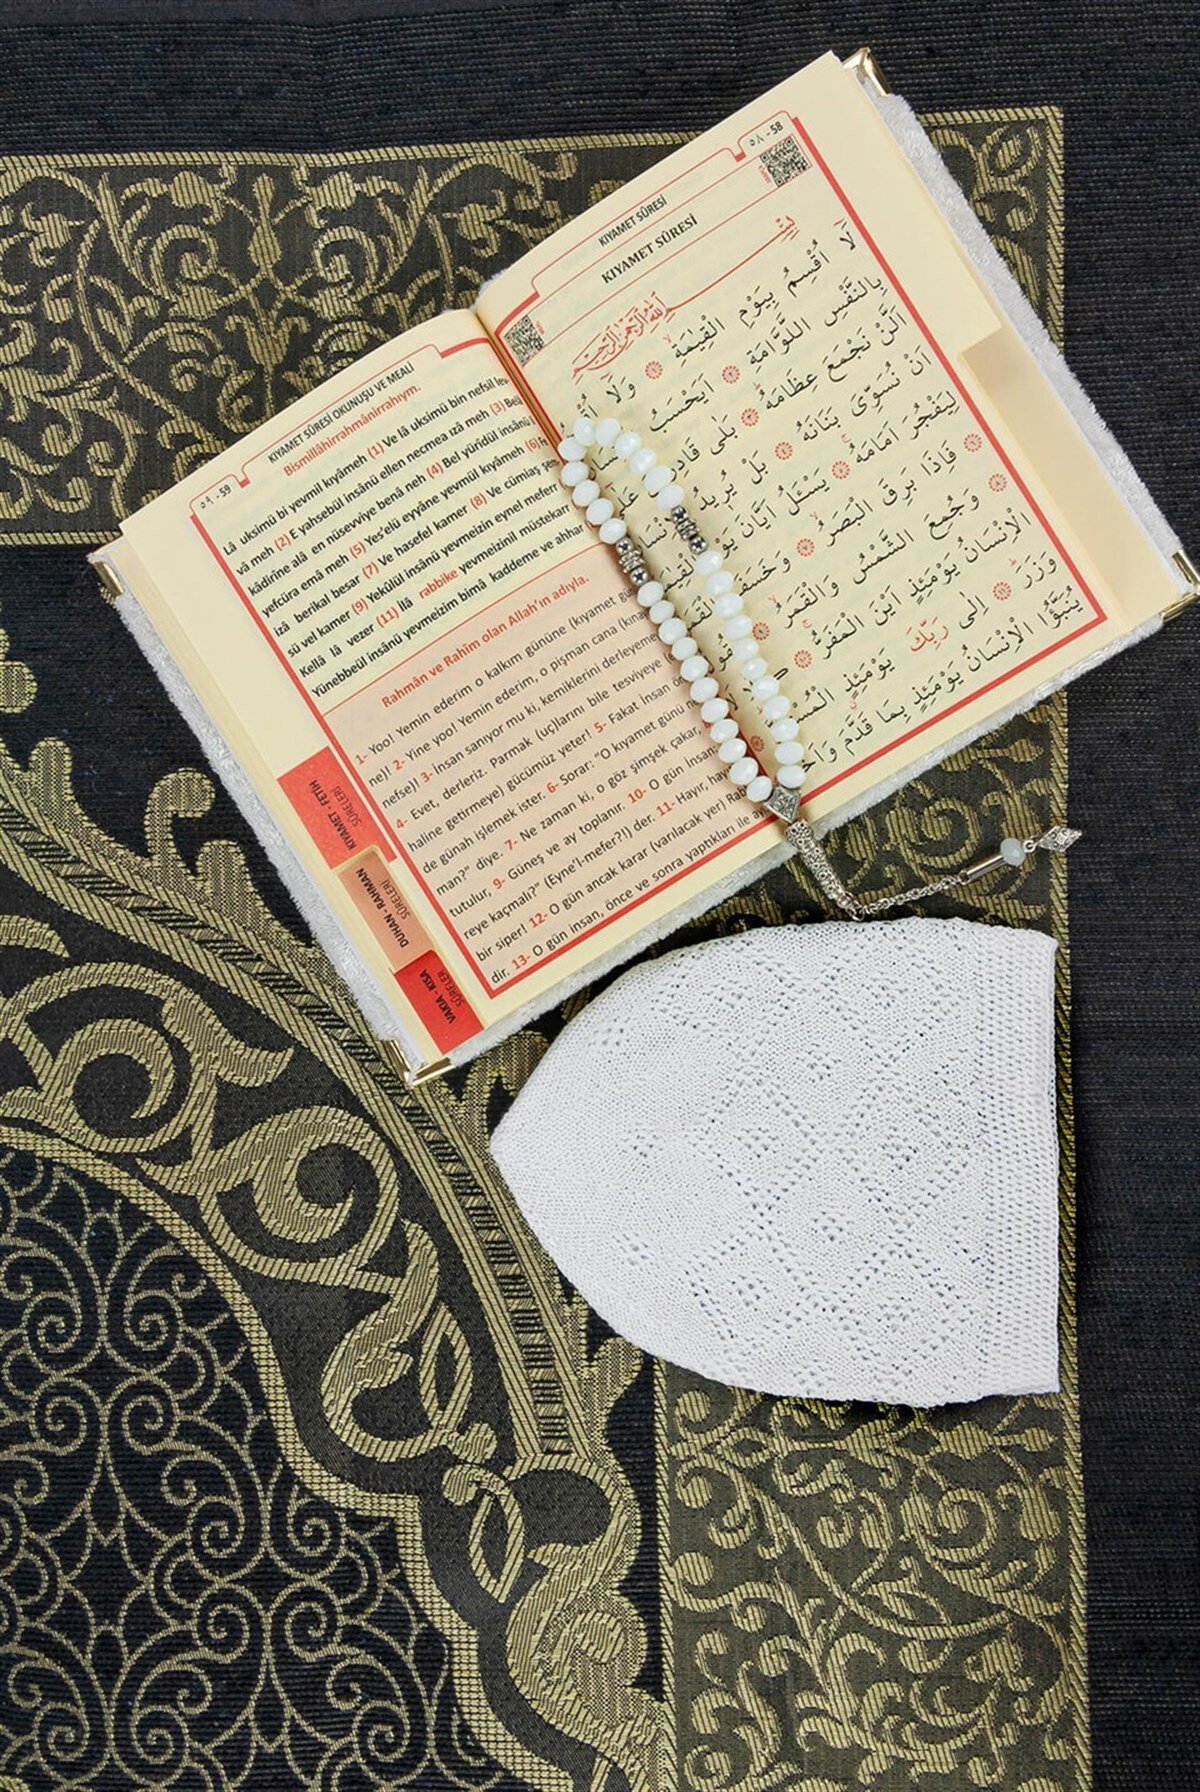 ٥٨ - 58
KIYAMET SÛRESİ
KIYAMET SÛRESİ
بِسْمِ اللّٰهِ الرَّحْمٰنِ الرَّحِيمِ
لَٓا اُقْسِمُ بِيَوْمِ الْقِيٰمَةِۙ ١ وَلَٓا
بِالنَّفْسِ اللَّوَّامَةِ ٢ اَيَحْسَبُ
اَلَّنْ نَجْمَعَ عِظَامَهُ ٣ بَلٰى
اَنْ نُسَوِّىَ بَنَانَهُ ٤ بَلْ يُرِيدُ
لِيَفْجُرَ اَمَامَهُ ٥ يَسْئَلُ اَيَّانَ
فَاِذَا بَرِقَ الْبَصَرُۙ ٧ وَخَسَفَ
وَجُمِعَ الشَّمْسُ وَالْقَمَرُۙ ٩
الْاِنْسَانُ يَوْمَئِذٍ اَيْنَ الْمَفَرُّ ١٠
وَزَرَ ١١ اِلٰى رَبِّكَ يَوْمَئِذٍ
يُنَبَّؤُا الْاِنْسَانُ يَوْمَئِذٍ بِمَا قَدَّمَ
٥٩ - 59
KIYAMET SÛRESİ OKUNUŞU VE MEALİ
Bismillâhirrahmânirrahıym.
Lâ uksimü bi yevmil kıyâmeh (1) Ve lâ uksimü bin nefsil
vâmeh (2) E yahsebül insânü ellen necmea ızâ meh (3)
kâdirîne alâ en nüsevviye benâ neh (4) Bel yürîdül insânü
yefcüra emâ meh (5) Yes’elü eyyâne yevmül kıyâmeh (6)
izâ berikal besar (7) Ve hasefel kamer (8) Ve cümiaş
sü vel kamer (9) Yekûlül insânü yevmeizin eynel meferr
Kellâ lâ vezer (11) İlâ rabbike yevmeizinil müstekarr
Yünebbeül insânü yevmeizim bimâ kaddeme ve ahhar
Rahmân ve Rahîm olan Allah’ın adıyla.
1- Yoo! Yemin ederim o kalkım gününe (kıyamet
ne)! 2- Yine yoo! Yemin ederim, o pişman cana
nefse)! 3- İnsan sanıyor mu ki, kemiklerini
4- Evet, derleriz. Parmak (uç)larını bile tesviyeye
haline getirmeye) gücümüz yeter! 5- Fakat İnsan
de günah işlemek ister. 6- Sorar: “O kıyamet günü
man?” diye. 7- Ne zaman ki, o göz şimşek çakar,
tutulur, 9- Güneş ve ay toplanır. 10- O gün İnsan
reye kaçmalı?” (Eyne’l-mefer?!) der. 11- Hayır,
bir siper! 12- O gün ancak karar (varılacak yer)
dir. 13- O gün insan, önce ve sonra yaptıkları ile
KIYAMET - FETİH
SÛRELERİ
DUHAN - RAHMAN
SÛRELERİ
VAKIA - KISA
SÛRELER